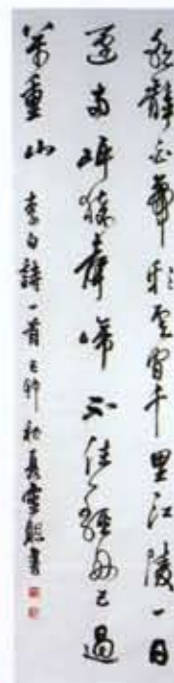 朝辭白帝彩雲間千里江陵一日
還兩岸猿聲啼不住輕舟已過
萬重山 李白詩一首 己卯初夏書